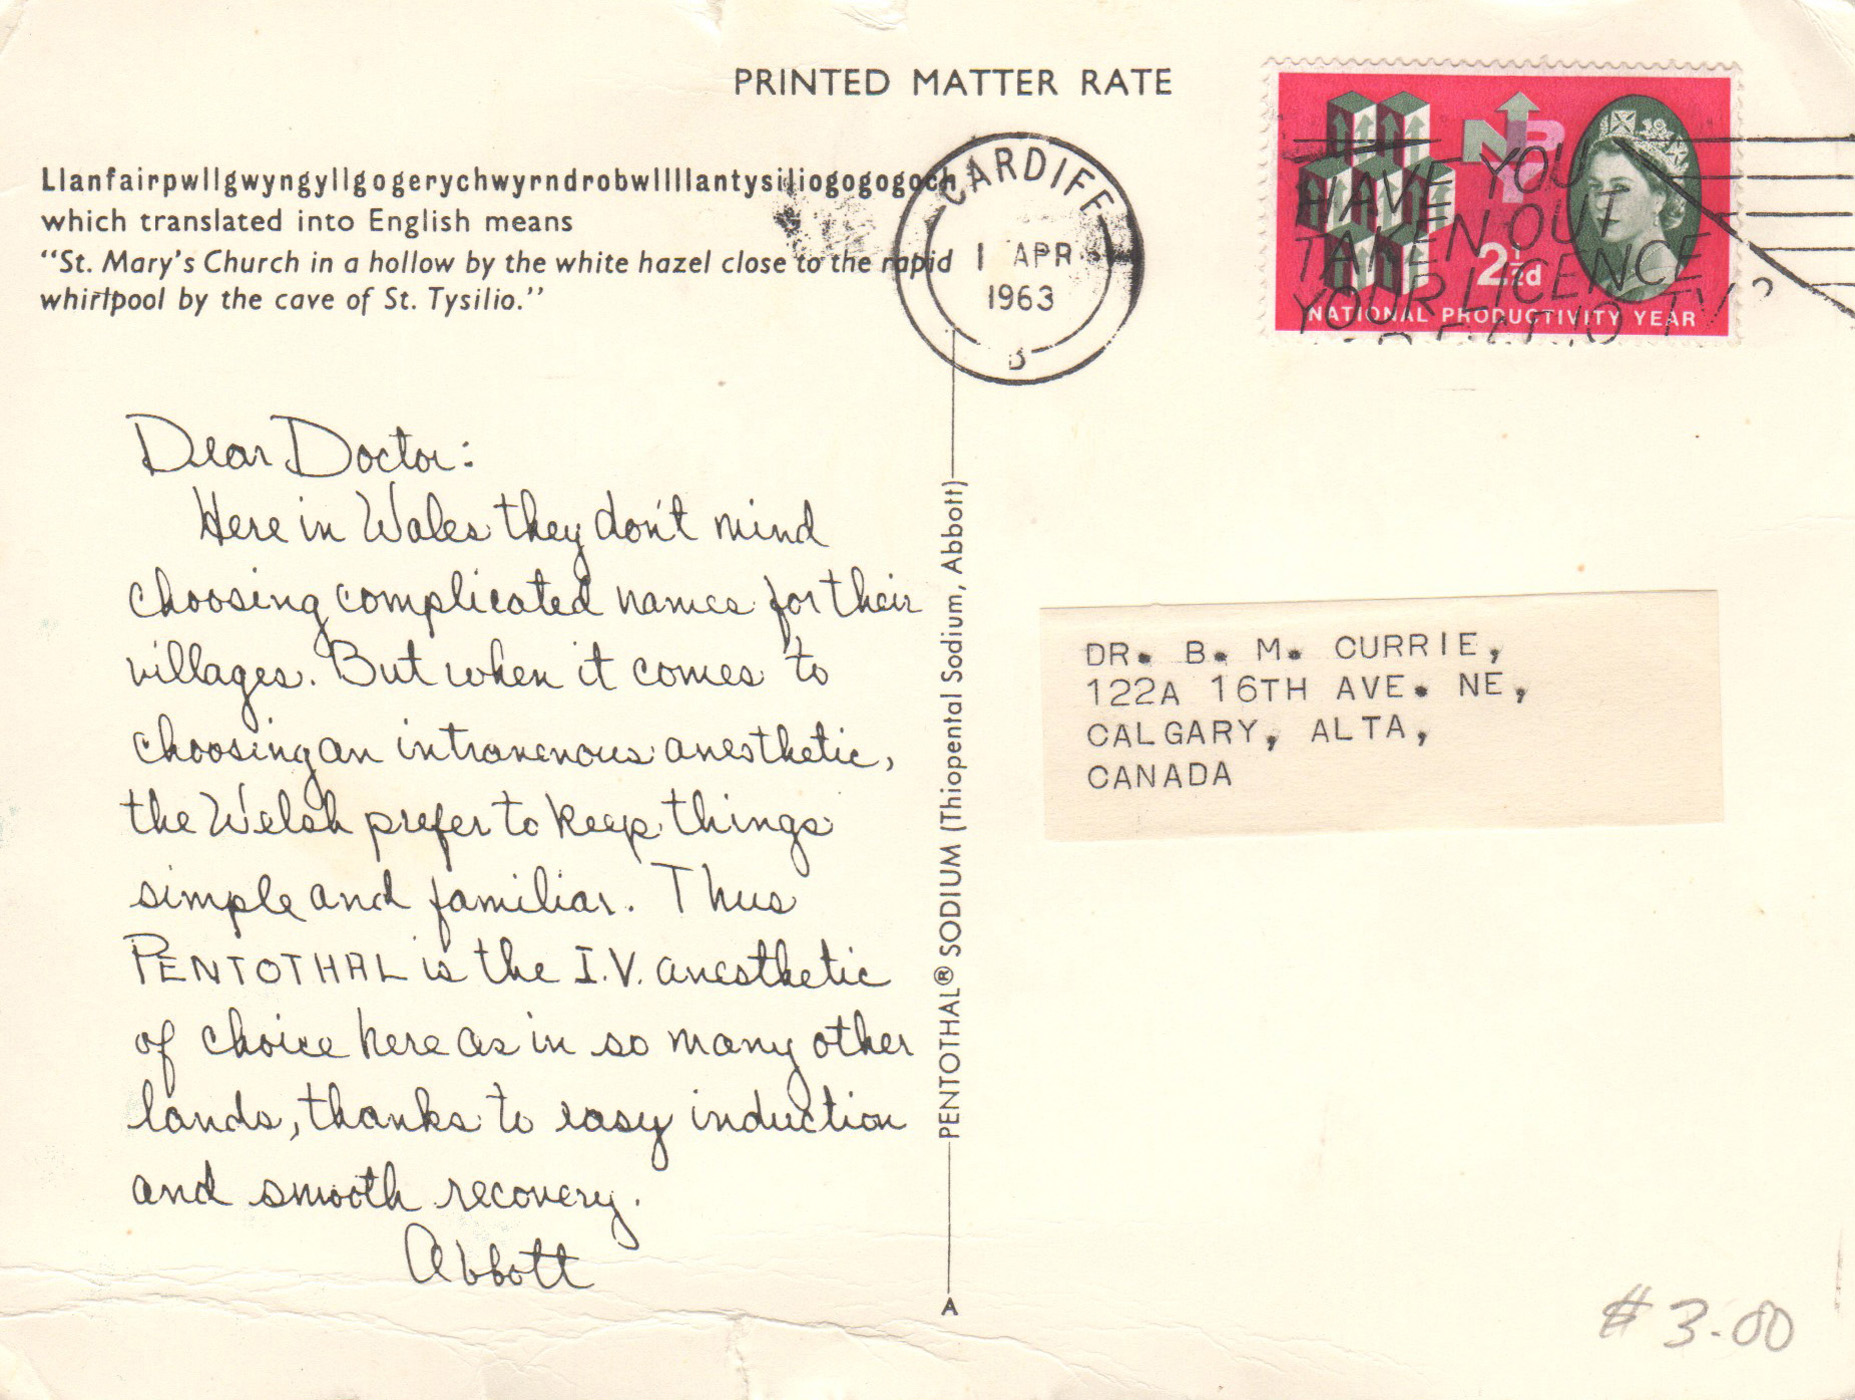 PRINTED MATTER RATE
Llanfairpwllgwyngyllgogerychwyrndrobwllllantysiliogogogoch
which translated into English means
“St. Mary’s Church in a hollow by the white hazel close to the rapid
whirlpool by the cave of St. Tysilio.”
CARDIFF
1 APR
1963
B
HAVE YOU
TAKEN OUT
YOUR LICENCE
TV?
2½d
NATIONAL PRODUCTIVITY YEAR
NPY
Dear Doctor:
Here in Wales they don't mind
choosing complicated names for their
villages. But when it comes to
choosing an intravenous anesthetic,
the Welsh prefer to keep things
simple and familiar. Thus
PENTOTHAL is the I.V. anesthetic
of choice here as in so many other
lands, thanks to easy induction
and smooth recovery.
Abbott
PENTOTHAL® SODIUM (Thiopental Sodium, Abbott)
A
DR. B. M. CURRIE,
122A 16TH AVE. NE,
CALGARY, ALTA,
CANADA
# 3.00